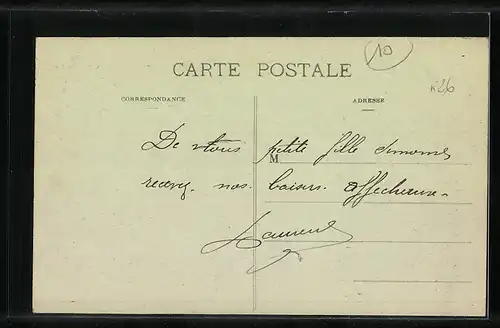 10
CARTE POSTALE
K26
CORRESPONDANCE
ADRESSE
De petite fille
M
recevez nos baisers affectueux
Laurent